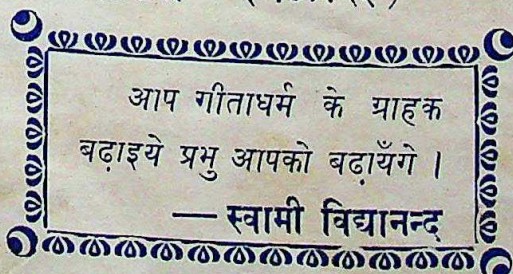 आप गीताधर्म के ग्राहक
बढ़ाइये प्रभु आपको बढ़ायँगे ।
— स्वामी विद्यानन्द